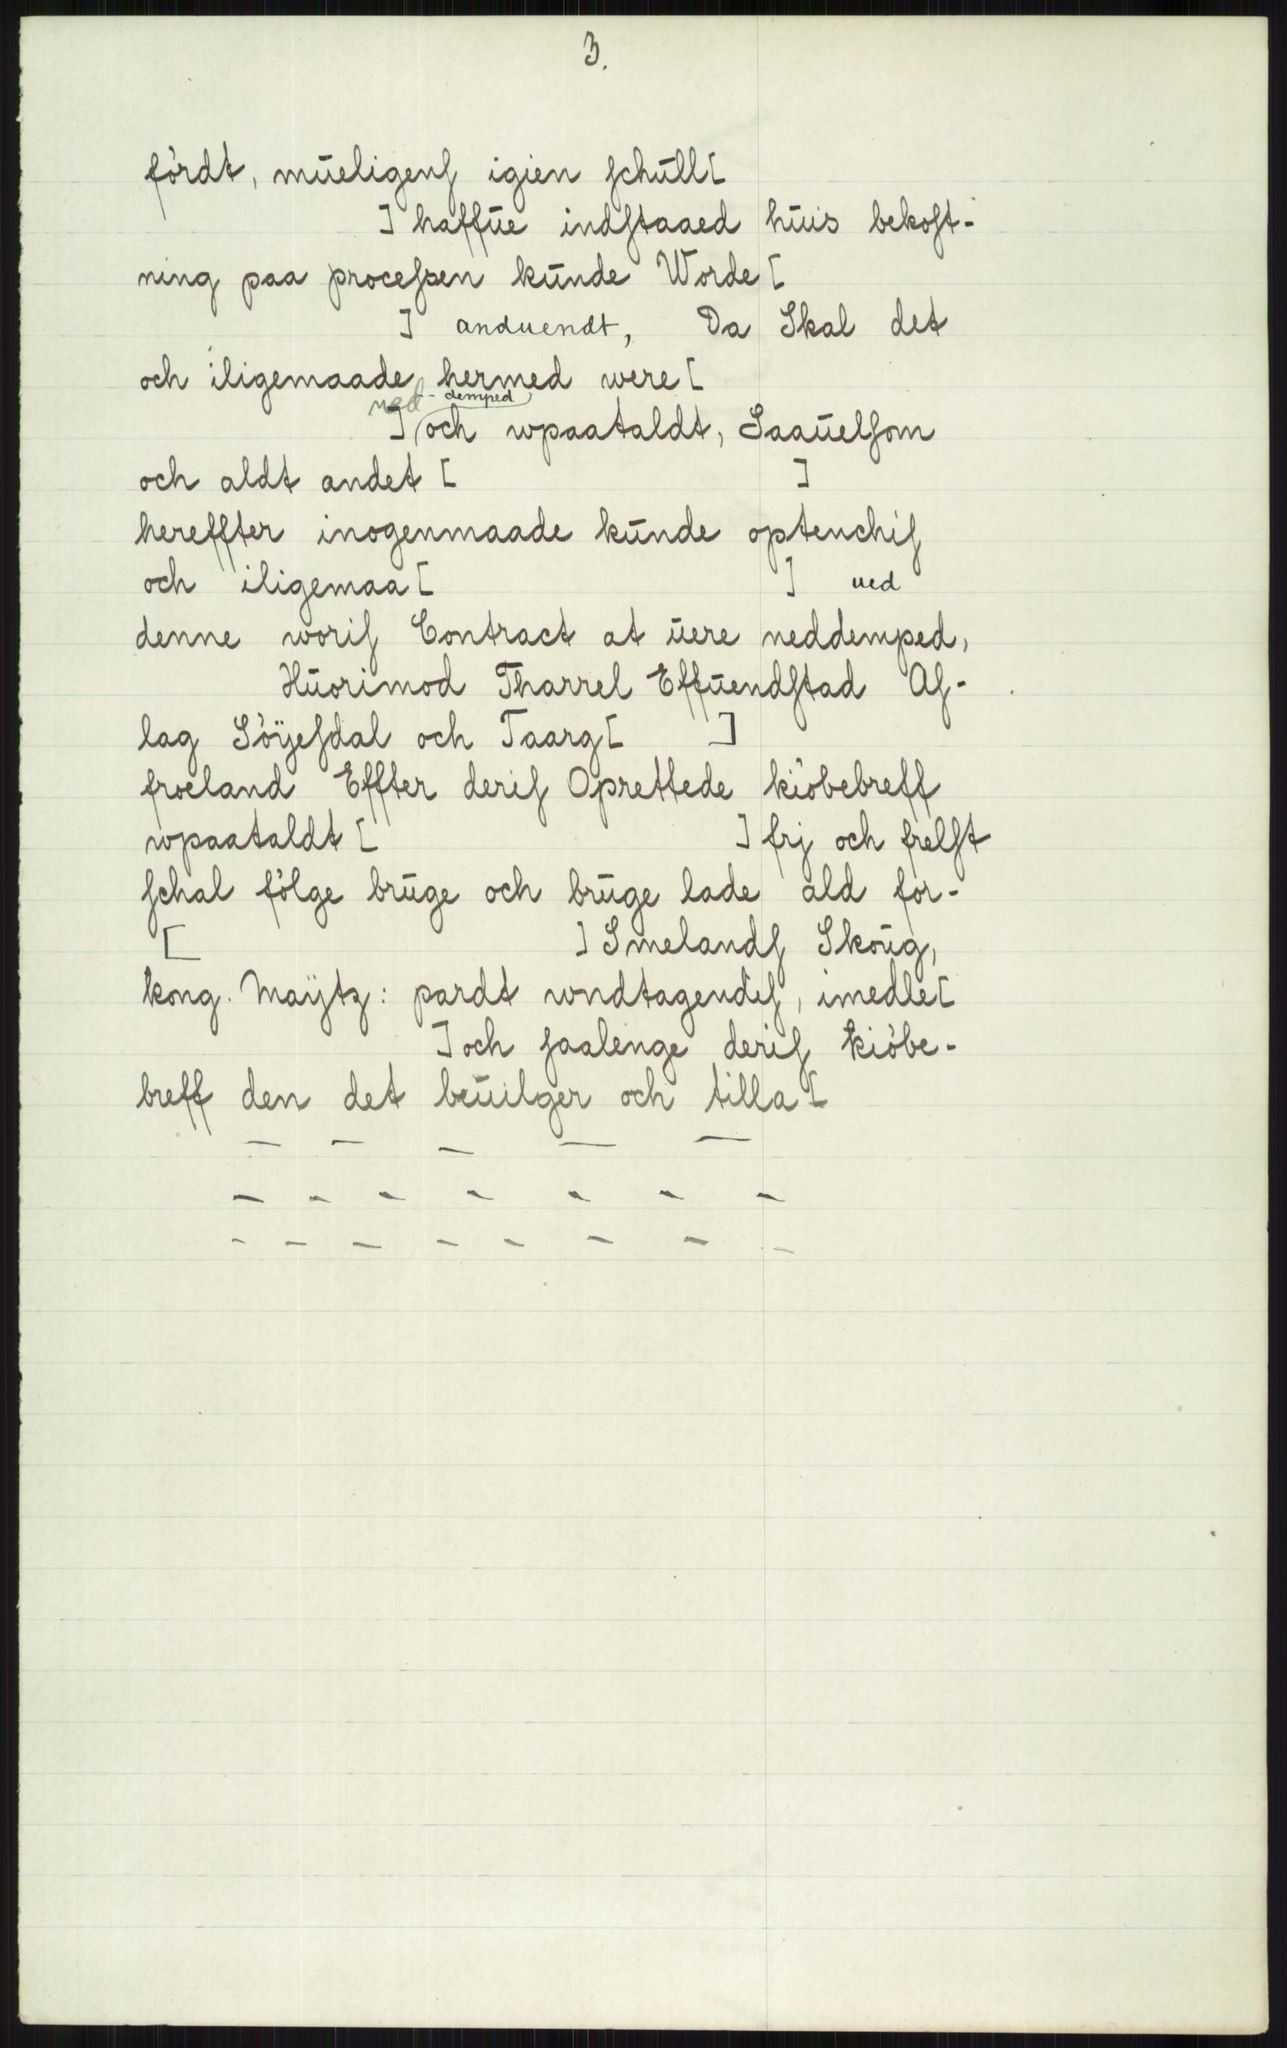 3.
fördt, mueligens igien schull[
] haffue indstaaed huis bekost-
ning paa processen kunde Worde [
] anduendt, Da Skal det
och iligemaade hermed were [
ned-demped
] och wpaataldt, Saauelsom
och aldt andet [ ]
hereffter inogenmaade kunde optenchis
och iligemaa[ ] ued
denne woris Contract at uere neddemped,
Huorimod Tharrel Effuendstad As-
lag Söÿesdal och Taarg[ ]
froeland Effter deris Oprettede kiöbebreff
wpaataldt [ ] frj och frelst
schal fölge bruge och bruge lade ald for-
[ ] Smelands Skoug,
kong. Maÿtz: pardt wndtagendis, imedle[
] och saalenge deris kiöbe-
breff den det beuilger och tilla[
— — — — —
- - - - - - -
- - - - - - - -